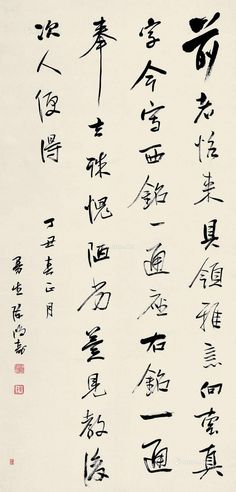 前者恰来具领雅意向索真
字今写西铭一通座右铭一通
奉去殊愧陋劣并见教后
次人便得
丁丑春正月